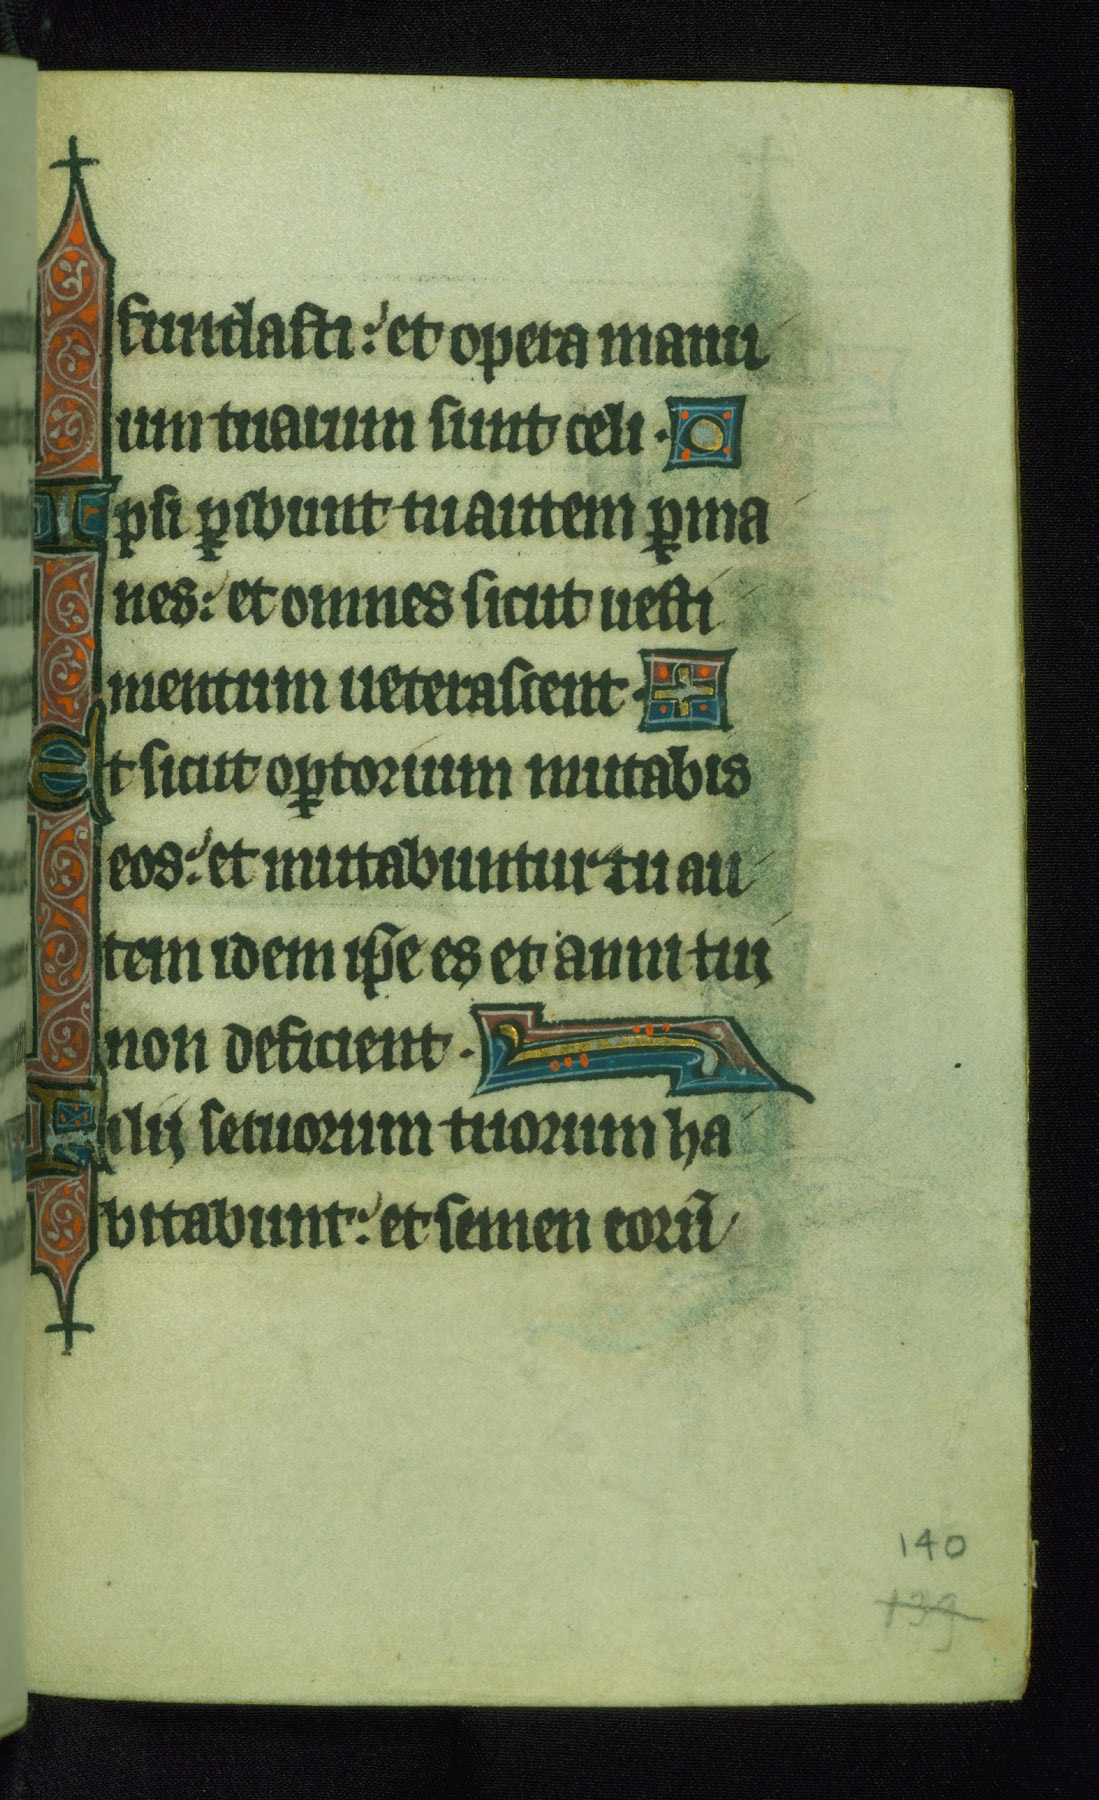 fundasti: et opera manu
um tuarum sunt celi.
Ipsi p̱ibunt tu autem p̱ma
nes: et omnes sicut uesti
mentum ueterascent.
Et sicut op̱torium mutabis
eos: et mutabuntur tu au
tem idem ip̄e es et anni tui
non deficient.
Filii seruorum tuorum ha
bitabunt: et semen eorū
140
139